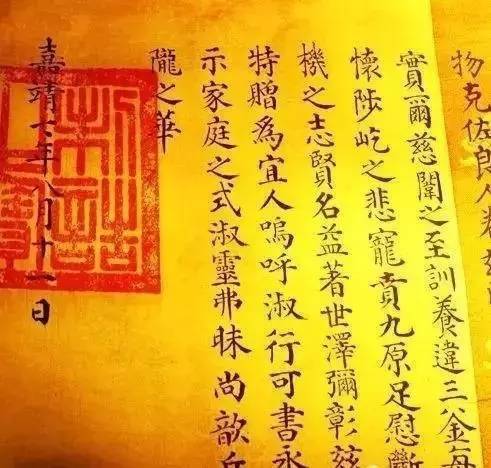 物克佐良人
實爾慈闈之至訓養違三釜每
懷陟屺之悲寵賁九原足慰斷
機之志賢名益著世澤彌彰茲
特贈為宜人嗚呼淑行可書永
示家庭之式淑靈弗昧尚歆丘
隴之華
嘉靖十年八月十一日